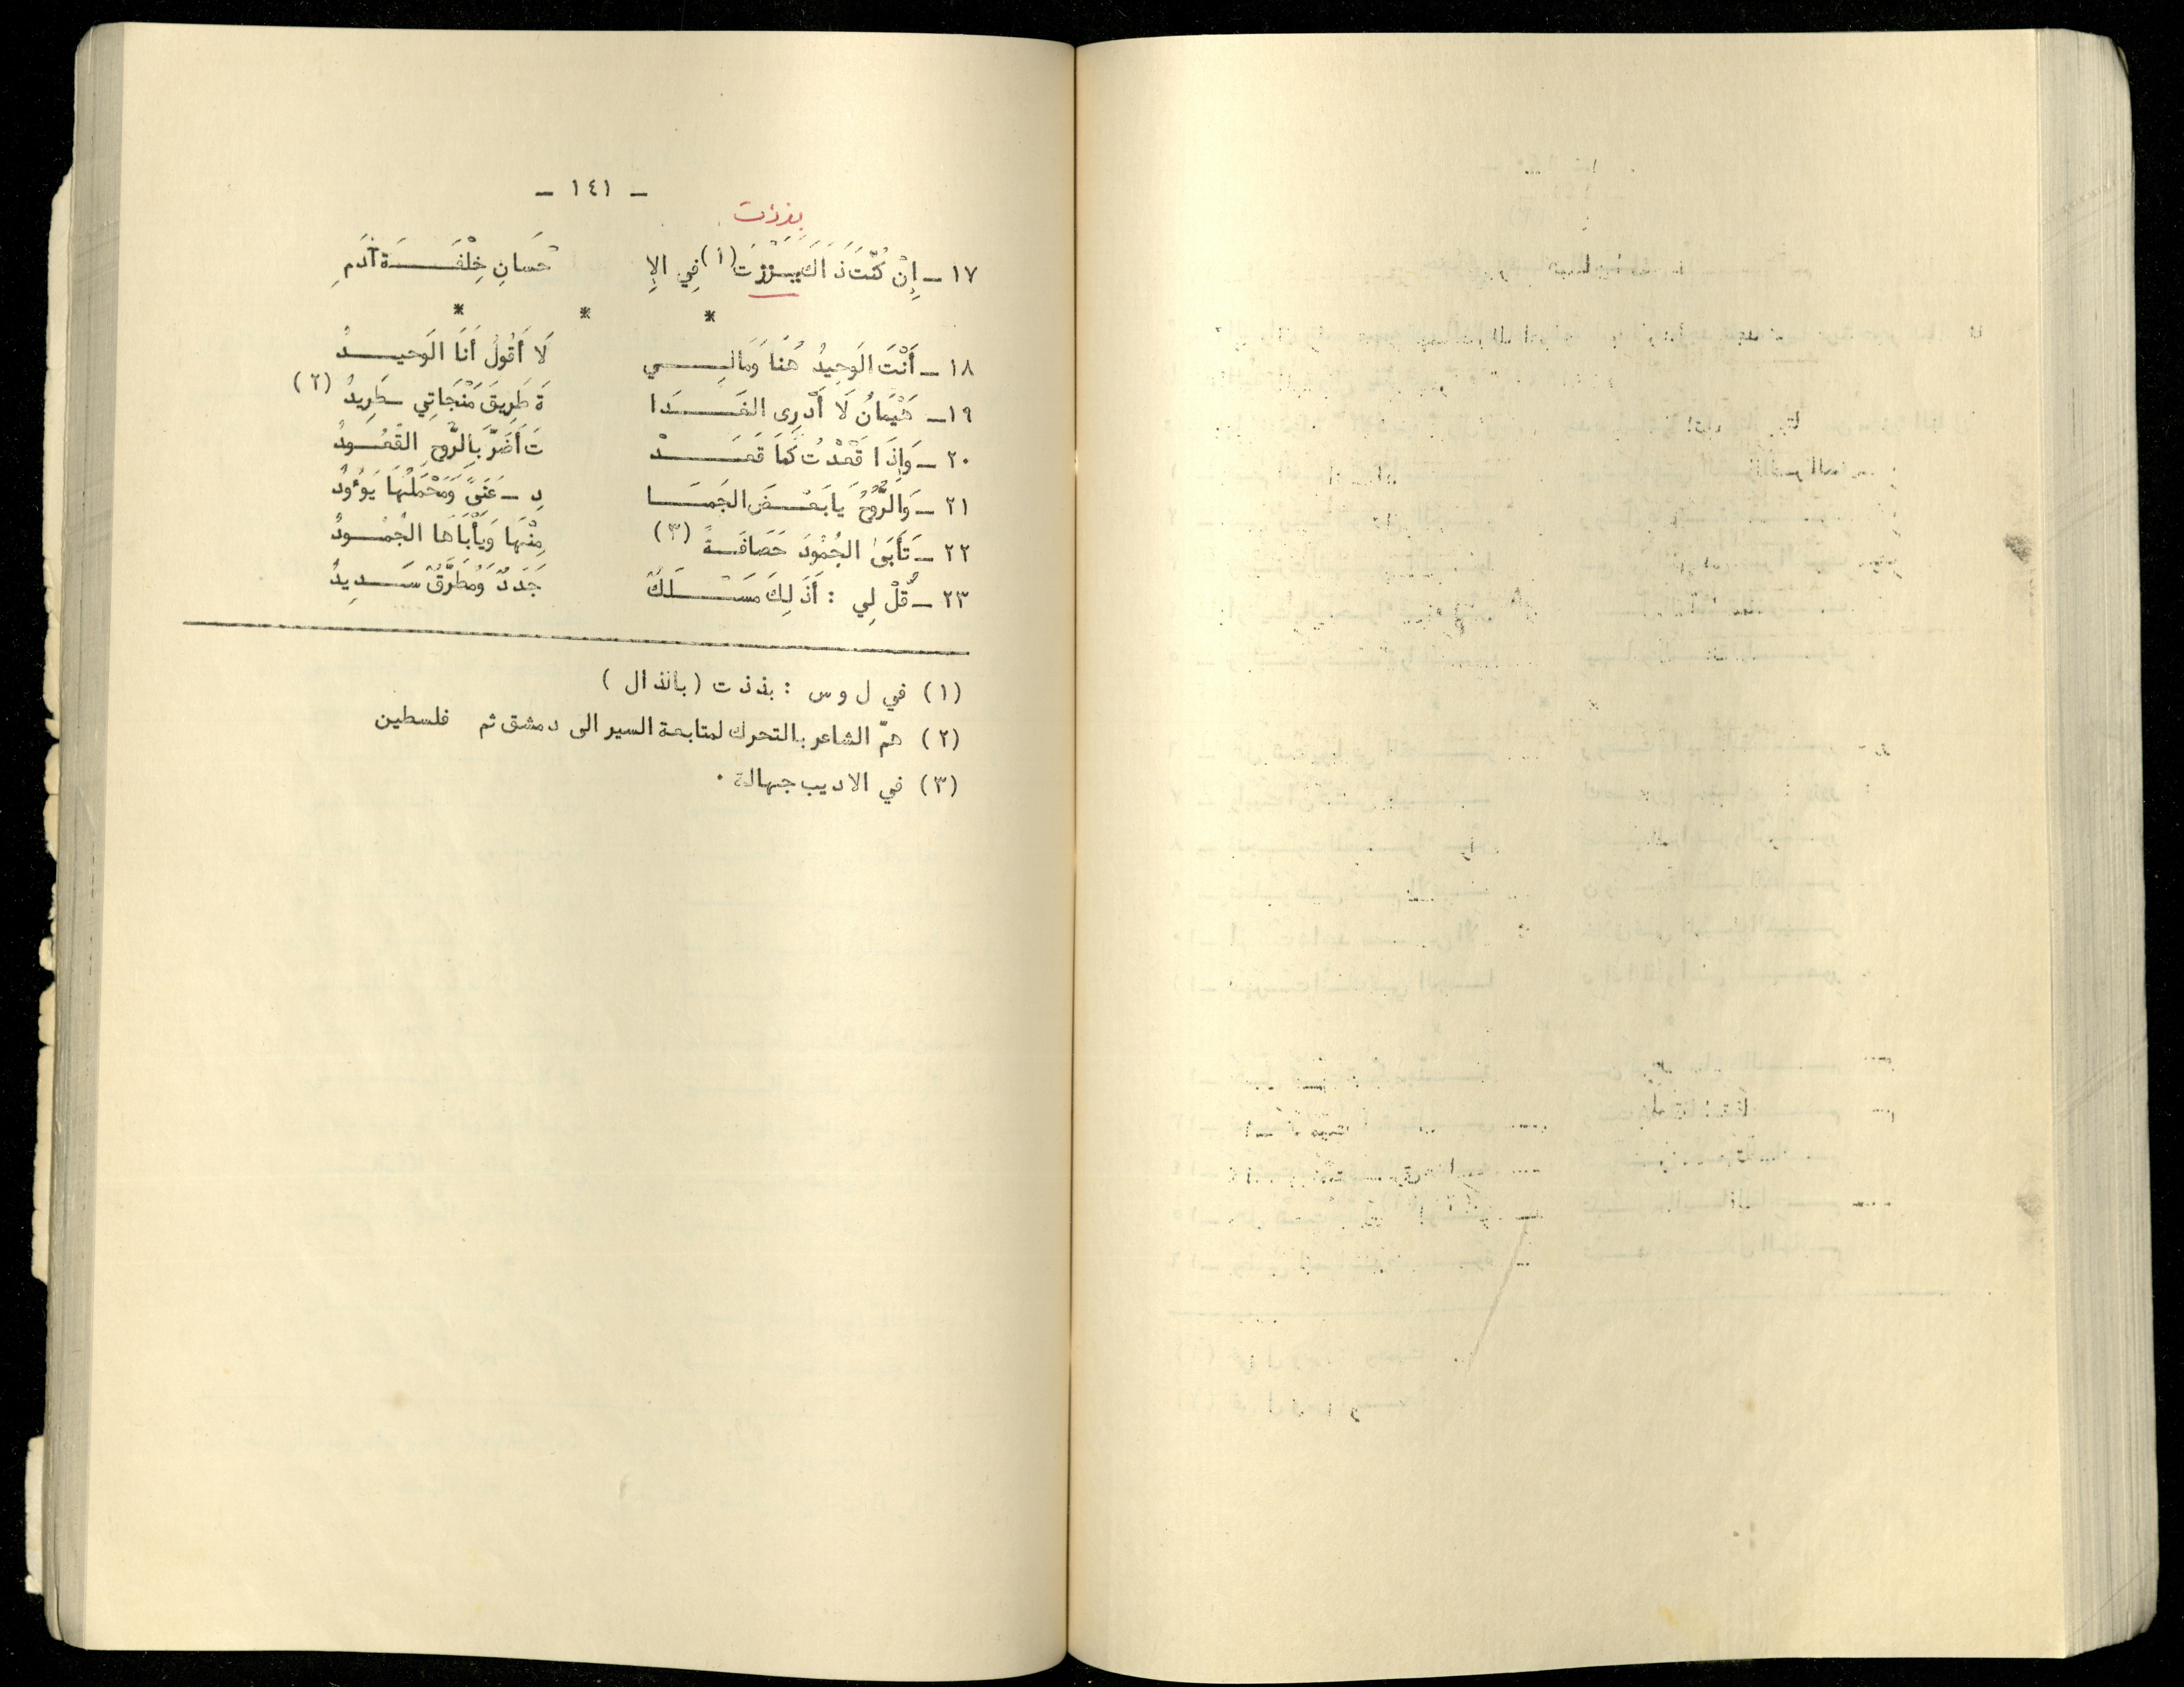 - ١٤١ -
بززت
١٧ - إِنْ كُنْتَ ذَاكَ بَزَزْتَ (١) فِي الإِ حْسَانِ خِلْقَةَ آدَمِ
* * *
١٨ - أَنْتَ الوَحِيدُ هُنَا وَمَالِي لَا أَقُولُ أَنَا الوَحيدُ
١٩ - هَيْمَانُ لَا أَدْرِى الغَدَا ةَ طَرِيقَ مَنْجَاتِي طَرِيدُ (٢)
٢٠ - وَإِذَا قَعَدْتُ كَمَا قَعَدْ تَ أَضَرَّ بِالرُّوحِ القُعُودُ
٢١ - وَالرُّوحُ يَا بَعْضَ الجَمَا دِ - غَنِىً وَمَحْمَلُهَا يَوءُودُ
٢٢ - تَأْبَىٰ الجُمُودَ حَصَافَةً (٣) مِنْهَا وَيَأْبَاهَا الجُمُودُ
٢٣ - قُلْ لِي : أَذَلِكَ مَسْلَكٌ جَدَدٌ وَمُطَّرَقٌ سَدِيدُ
(١) في ل و س : بذذت (بالذال )
(٢) همّ الشاعر بالتحرك لمتابعة السير الى دمشق ثم فلسطين
(٣) في الاديب جهالة .